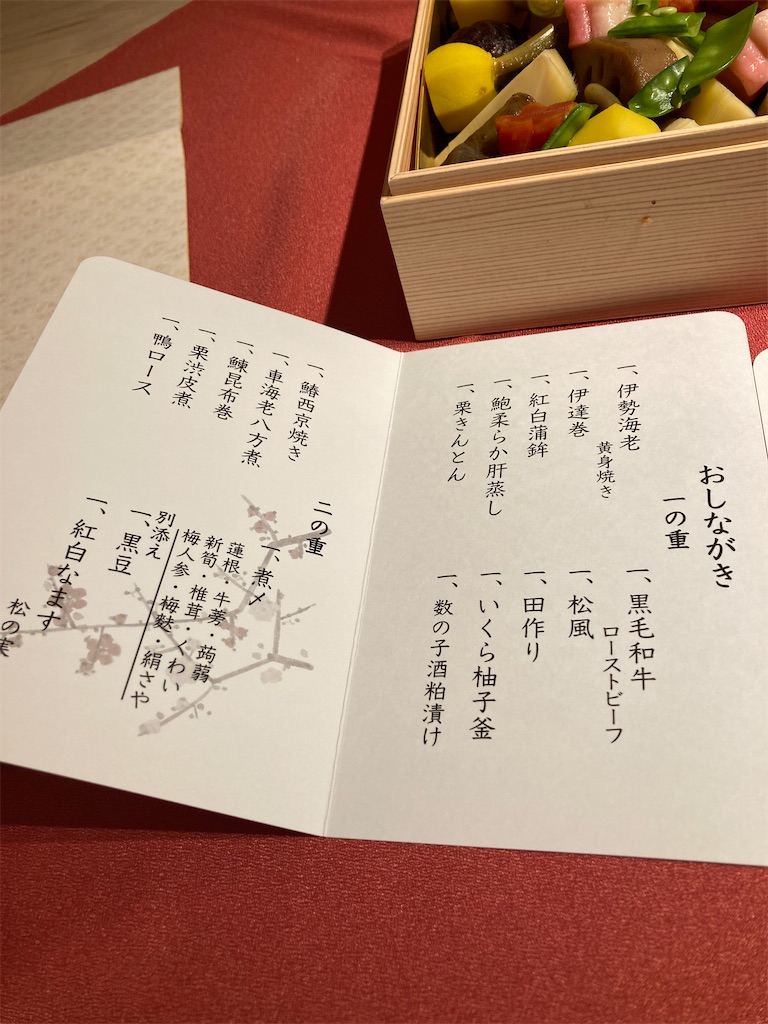 おしながき
一の重
一、伊勢海老
黄身焼き
一、伊達巻
一、紅白蒲鉾
一、鮑柔らか肝蒸し
一、栗きんとん
一、黒毛和牛
ローストビーフ
一、松風
一、田作り
一、いくら柚子釜
一、数の子酒粕漬け
一、鰆西京焼き
一、車海老八方煮
一、鰊昆布巻
一、栗渋皮煮
一、鴨ロース
二の重
一、煮〆
蓮根・牛蒡・蒟蒻
新筍・椎茸・くわい
梅人参・梅麩・絹さや
別添え
一、黒豆
一、紅白なます
松の実